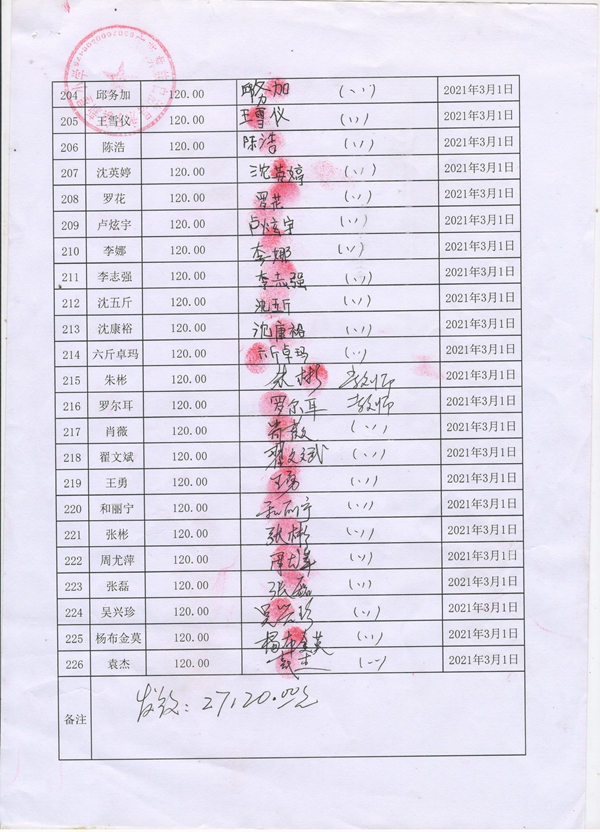 204 邱务加 120.00 邱务加 (ヽヽ) 2021年3月1日
205 王雪仪 120.00 王雪仪 (ヽヽ) 2021年3月1日
206 陈浩 120.00 陈浩 (ヽヽ) 2021年3月1日
207 沈英婷 120.00 沈英婷 (ヽヽ) 2021年3月1日
208 罗花 120.00 罗花 (ヽヽ) 2021年3月1日
209 卢炫宇 120.00 卢炫宇 (ヽヽ) 2021年3月1日
210 李娜 120.00 李娜 (ヽヽ) 2021年3月1日
211 李志强 120.00 李志强 (ヽヽ) 2021年3月1日
212 沈五斤 120.00 沈五斤 (ヽヽ) 2021年3月1日
213 沈康裕 120.00 沈康裕 (ヽヽ) 2021年3月1日
214 六斤卓玛 120.00 六斤卓玛 (ヽヽ) 2021年3月1日
215 朱彬 120.00 朱彬 教师 2021年3月1日
216 罗尔耳 120.00 罗尔耳 教师 2021年3月1日
217 肖薇 120.00 肖薇 (ヽヽ) 2021年3月1日
218 翟文斌 120.00 翟文斌 (ヽヽ) 2021年3月1日
219 王勇 120.00 王勇 (ヽヽ) 2021年3月1日
220 和丽宁 120.00 和丽宁 (ヽヽ) 2021年3月1日
221 张彬 120.00 张彬 (ヽヽ) 2021年3月1日
222 周尤萍 120.00 (ヽヽ) 2021年3月1日
223 张磊 120.00 张磊 (ヽヽ) 2021年3月1日
224 吴兴珍 120.00 吴兴珍 (ヽヽ) 2021年3月1日
225 杨布金莫 120.00 杨布金莫 (ヽヽ) 2021年3月1日
226 袁杰 120.00 (ヽヽ) 2021年3月1日
备注 发放：27120.00元